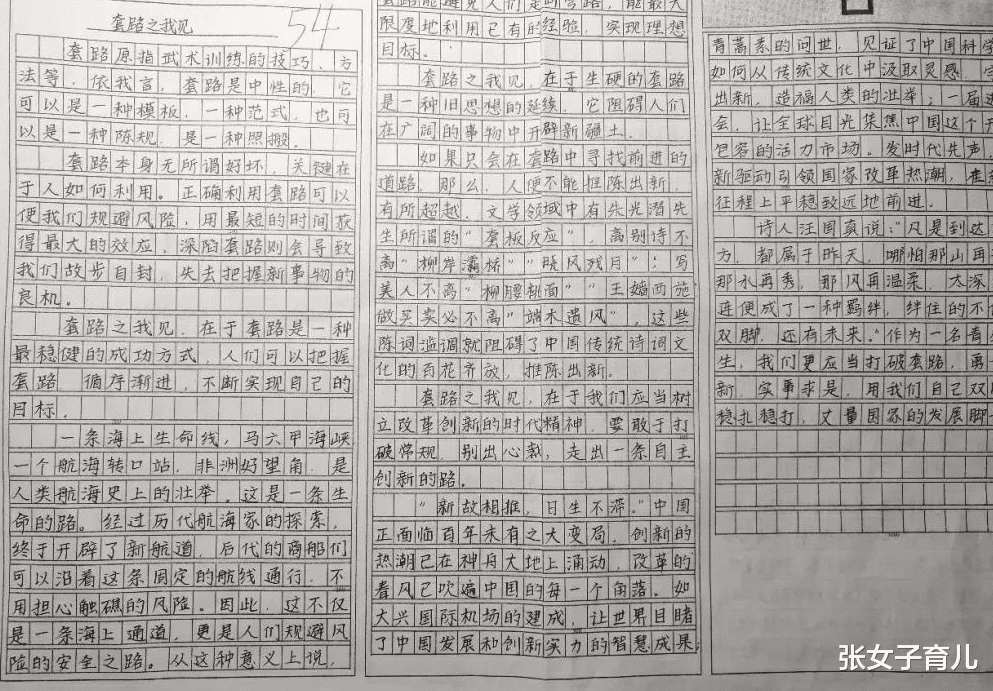 套路之我见
54
套路原指武术训练的技巧、方
法等，依我言，套路是中性的，它
可以是一种模板，一种范式，也可
以是一种陈规，是一种照搬。
套路本身无所谓好坏，关键在
于人如何利用。正确利用套路可以
使我们规避风险，用最短的时间获
得最大的效应，深陷套路则会导致
我们故步自封，失去把握新事物的
良机。
套路之我见，在于套路是一种
最稳健的成功方式，人们可以把握
套路 循序渐进，不断实现自己的
目标。
一条海上生命线，马六甲海峡，
一个航海转口站，非洲好望角，是
人类航海史上的壮举，这是一条生
命的路。经过历代航海家的探索，
终于开辟了新航道，后代的商船们
可以沿着这条固定的航线通行，不
用担心触礁的风险。因此，这不仅
是一条海上通道，更是人们规避风
险的安全之路。从这种意义上说，
套路能避免人们走断弯路，能最大
限度地利用已有的经验，实现理想
目标。
套路之我见，在于生硬的套路
是一种旧思想的延续，它阻碍人们
在广阔的事物中开辟新疆土。
如果只会在套路中寻找前进的
道路，那么，人便不能推陈出新，
有所超越，文学领域中有朱光潜先
生所谓的“套板反应”，离别诗不
离“柳岸灞桥”“晓风残月”；写
美人不离“柳腰桃面”“王嫱西施
做买卖必不离“端木遗风”，这些
陈词滥调就阻碍了中国传统诗词文
化的百花齐放，推陈出新。
套路之我见，在于我们应当树
立改革创新的时代精神，要敢于打
破常规，别出心裁，走出一条自主
创新的路。
“新故相推，日生不滞。”中国
正面临百年未有之大变局，创新的
热潮已在神舟大地上涌动，改革的
春风已吹遍中国的每一个角落。如
大兴国际机场的建成，让世界目睹
了中国发展和创新实力的智慧成果；
青蒿素的问世，见证了中国科学
如何从传统文化中汲取灵感，
出新，造福人类的壮举；一届进
会，让全球目光集焦中国这个开
包容的活力市场。发时代先声，
新驱动引领国家改革热潮，在
征程上平稳致远地前进。
诗人汪国真说：“凡是到达
方，都属于昨天，哪怕那山再
那水再秀，那风再温柔，太深
连便成了一种羁绊，绊住的不
双脚，还有未来。”作为一名青
生，我们更应当打破套路，勇
新，实事求是，用我们自己双
稳扎稳打，丈量国家的发展脚
张女子育儿